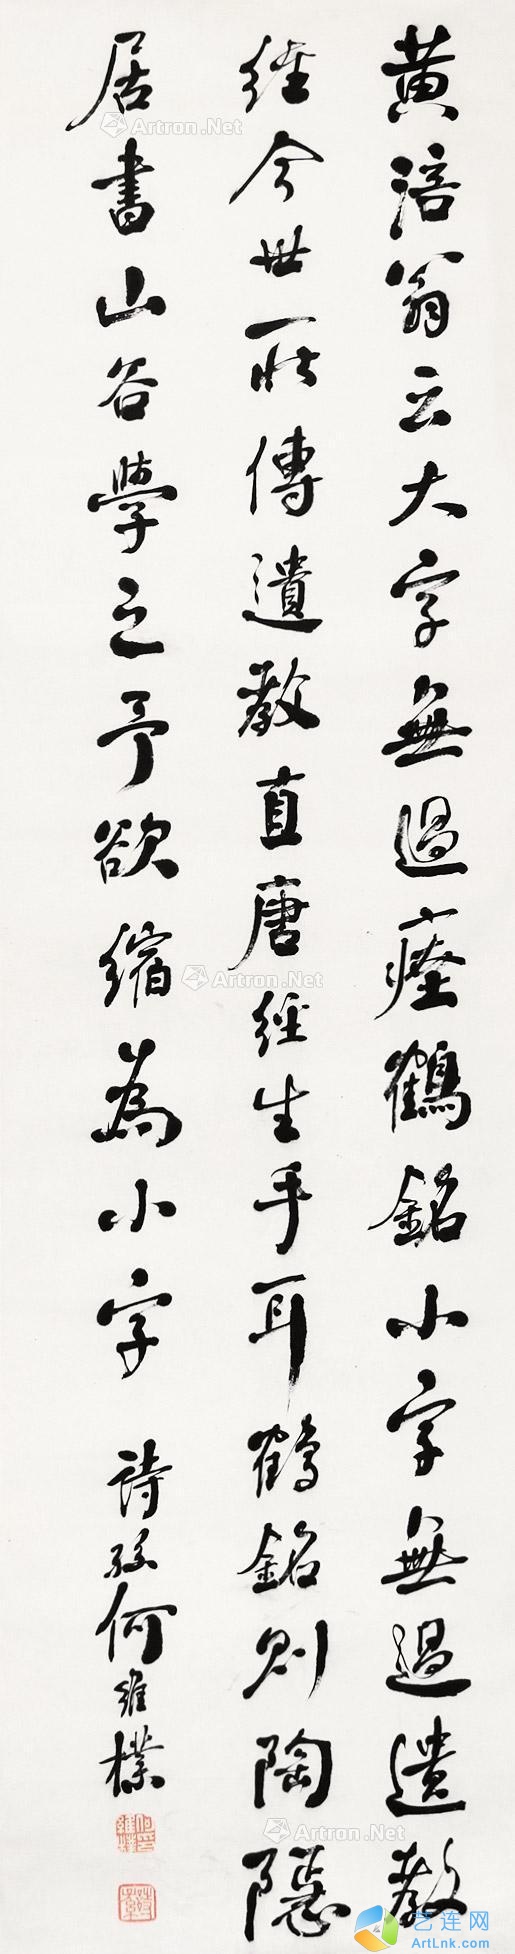 黄涪翁云大字無過瘞鶴銘小字無過遺教
經今世所傳遺教直唐經生手耳鶴銘則陶隱
居書山谷學之予欲縮為小字
詩孫何維樸
Artron.Net
Artron.Net
Artron.Net
Artron.Net
Artron.Net
Artron.Net
艺连网
ArtLnk.com